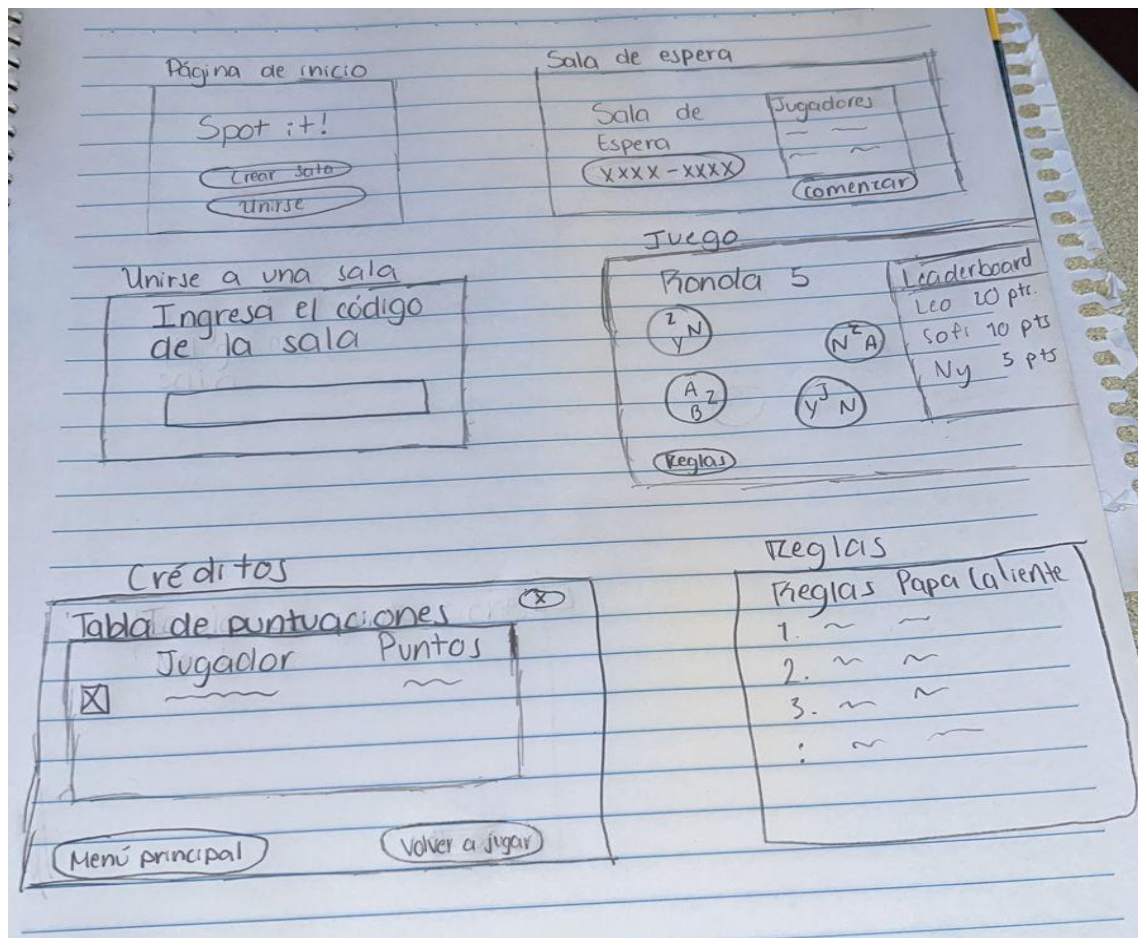 Página de inicio
Spot it!
Crear sala
Unirse
Sala de espera
Sala de
Espera
XXXX-XXXX
Jugadores
Comenzar
Unirse a una sala
Ingresa el código
de la sala
Juego
Ronda 5
Z Y N
N Z A
A B Z
Y J N
Reglas
Leaderboard
Leo 20 pts.
Sofi 10 pts
Ny 5 pts
Créditos
Tabla de puntuaciones
X
Jugador Puntos
X
Menú principal
Volver a jugar
Reglas
Reglas Papa Caliente
1.
2.
3.
: